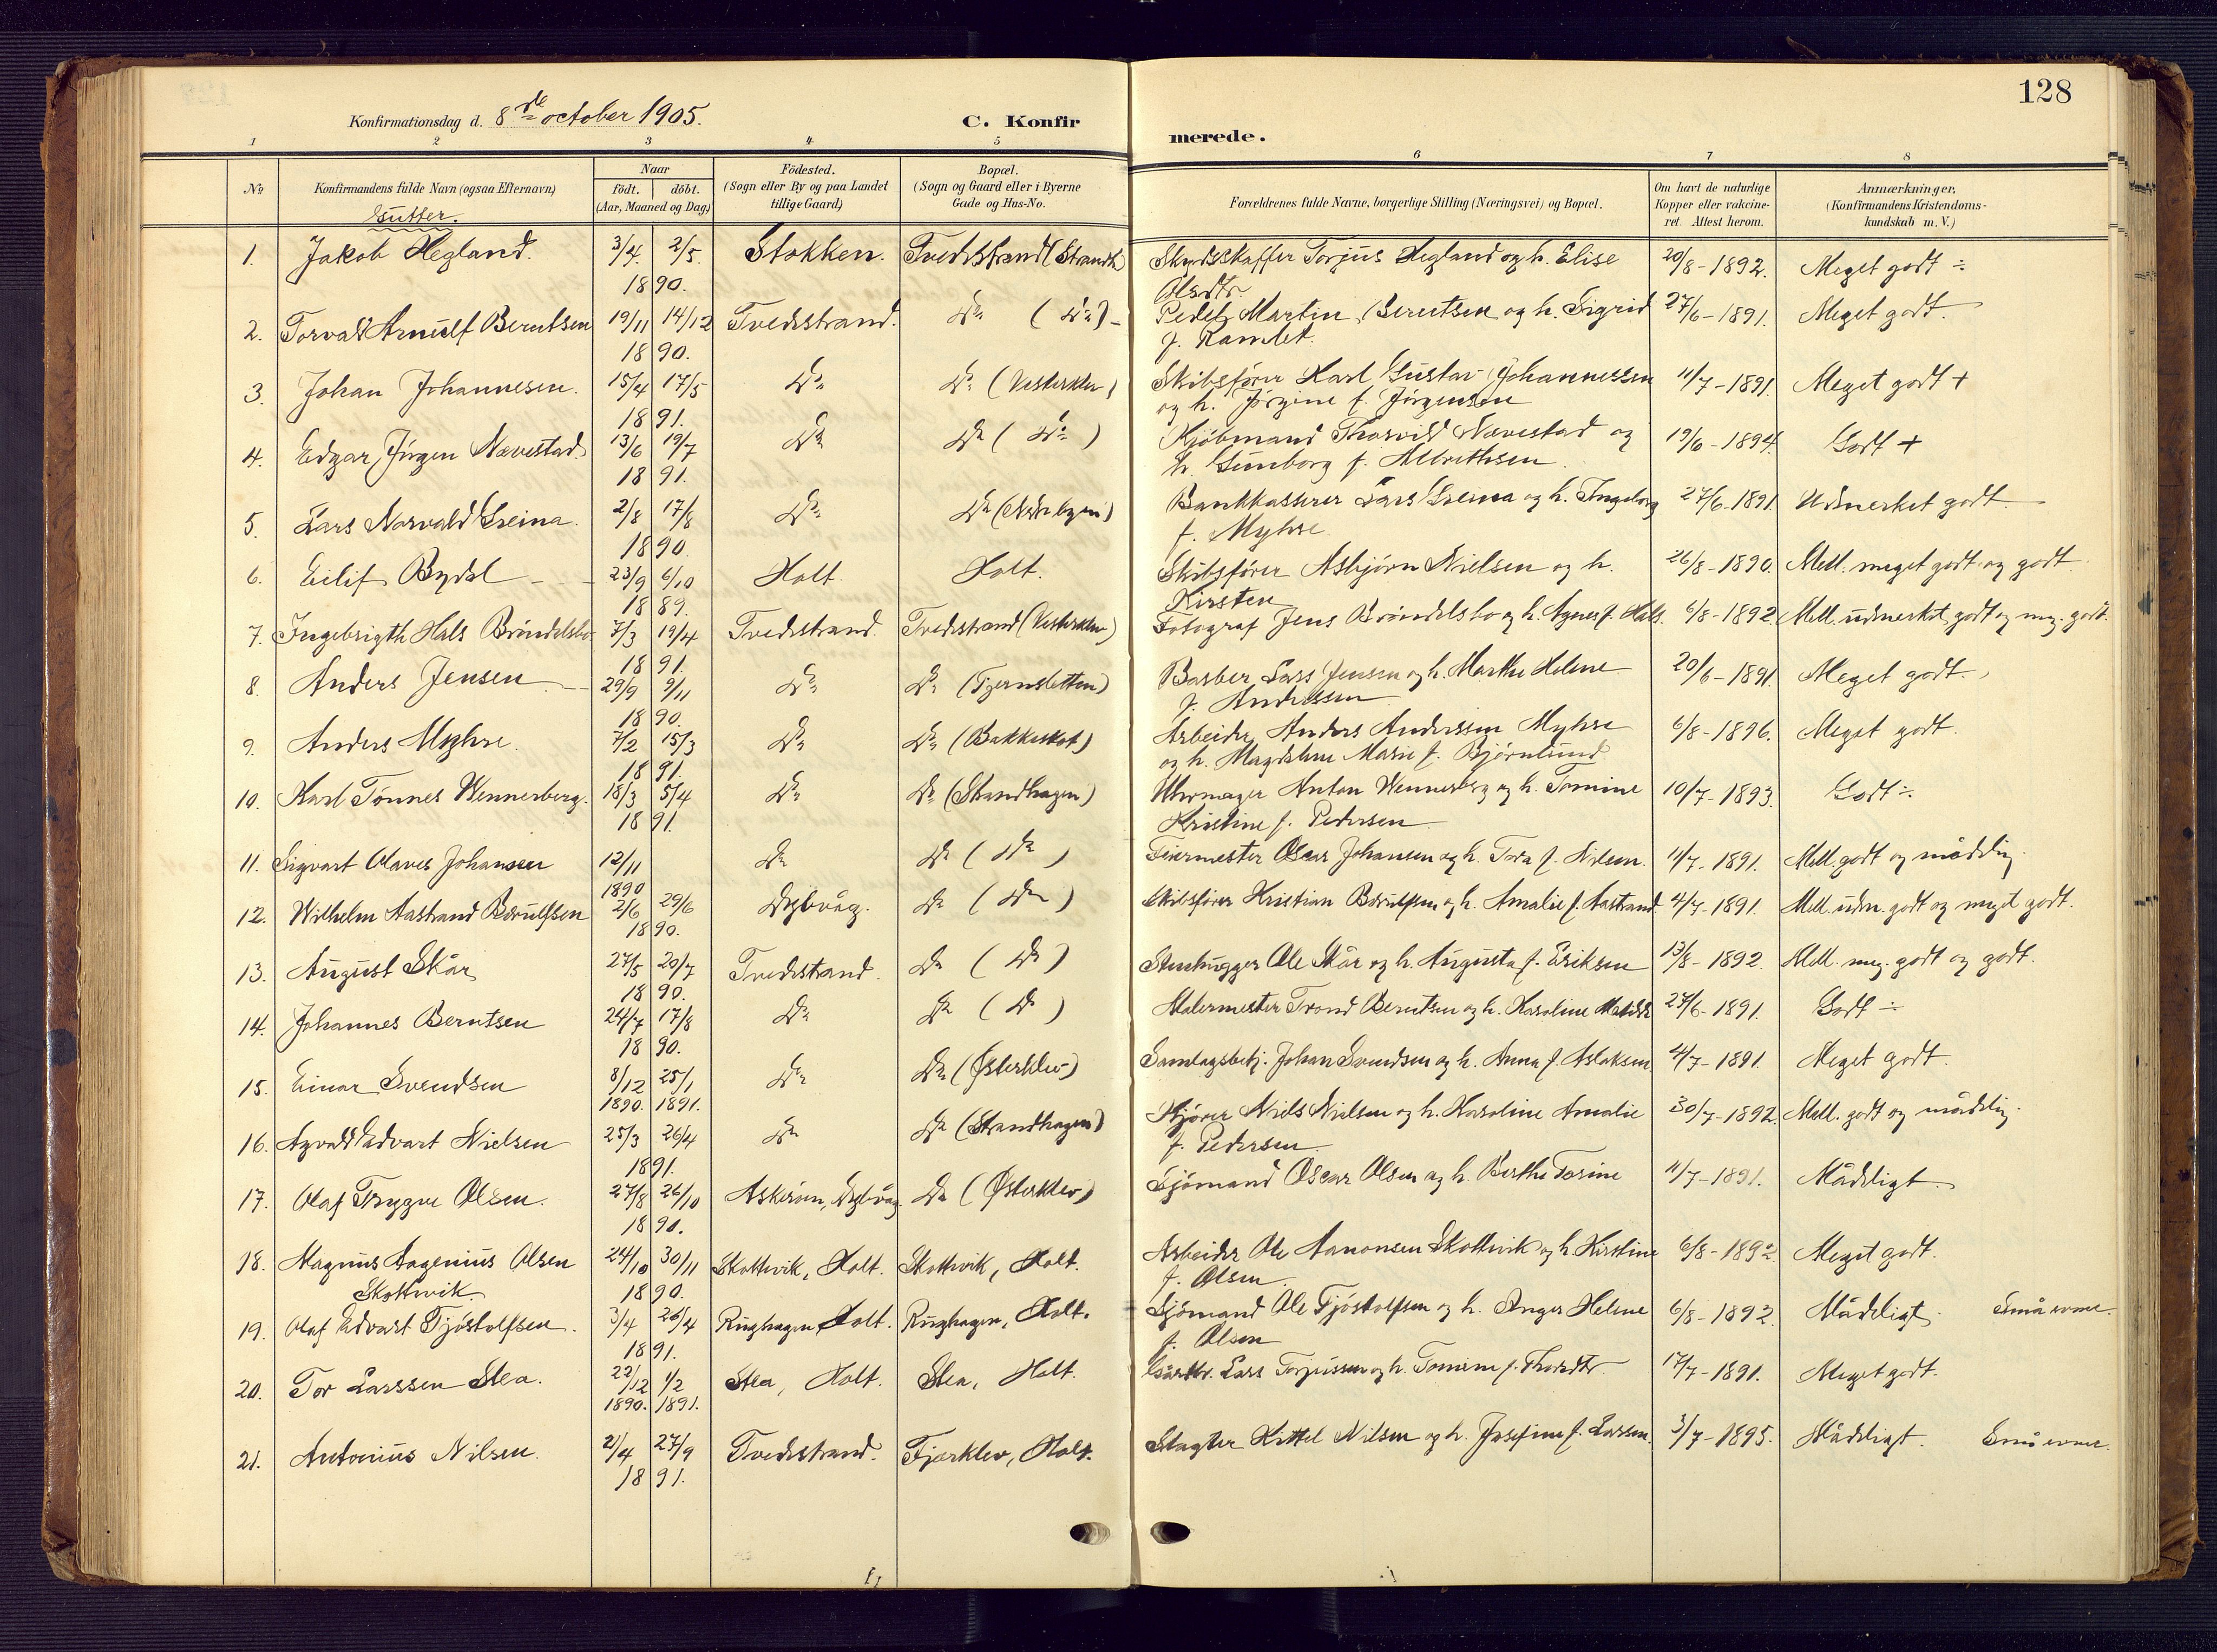 128
Konfirmationsdag d. 8de october 1905.
C. Konfir
merede.
1 2 3 4 5 6 7 8
No
Konfirmandens fulde Navn (ogsaa Efternavn)
Naar
födt. döbt.
(Aar, Maaned og Dag)
Födested.
(Sogn eller By og paa Landet
tillige Gaard)
Bopæl.
(Sogn og Gaard eller i Byerne
Gade og Hus-No.
Forældrenes fulde Navne, borgerlige Stilling (Næringsvei) og Bopæl.
Om havt de naturlige
Kopper eller vakcine-
ret. Attest herom.
Anmærkninger.
(Konfirmandens Kristendoms-
kundskab m. V.)
Gutter.
1. Jakob Hegland. 3/4 2/5 Stokken. Tvedestrand (Strandh) Skydsskaffer Torjus Hegland og h. Elise 20/8-1892. Meget godt ÷
1890. Olsdtr.
2. Torvald Arnulf Berntsen 19/11 14/12 Tvedestrand. Do (Do) Pedel Martin Berntsen og h. Sigrid 27/6-1891. Meget godt.
1890. f. Ramlet.
3. Johan Johannesen. 15/4 17/5 Do Do (Vesterklev) Skibsfører Karl Gustav Johannessen 11/7-1891. Meget godt +
1891. og h. Jørgine f. Jørgensen
4. Edgar Jørgen Nævestad. 13/6 19/7 Do Do (Do) Kjøbmand Thorvild Nævestad og 19/6-1894. Godt +
1891. h. Gunborg f. Albrethsen.
5. Lars Norvald Greina. 2/8 17/8 Do Do Bankkasserer Lars Greina og h. Ingeborg 27/6-1891. Udmerket godt.
1890. f. Myhre
6. Eilif Bydal 23/9 6/10 Holt. Holt. Skibsfører Asbjørn Nielsen og h. 26/8-1890. Mell. meget godt og godt.
1889. Kirsten
7. Ingebrigth Hals Bröndelsbo 7/3 19/4 Tvedestrand. Tvedestrand (Vesterklev) Fotograf Jens Bröndelsbo og h. Agnes f. Hals. 6/8-1892. Mell. udmerket godt og meg. godt.
1891.
8. Anders Jensen 29/9 9/11 Do Do (Tjernsletten) Barber Lars Jensen og h. Marthe Helene 20/6-1891. Meget godt.
1890. f. Andressen
9. Anders Myhre. 7/2 15/3 Do Do (Bakkeskot) Arbeider Anders Anderssen Myhre 6/8-1896. Meget godt.
1891. og h. Magdalene Marie f. Bjørnlund
10. Karl Tönnes Wennerberg. 18/3 5/4 Do Do (Strandhagen) Uhrmager Anton Wennerberg og h. Tomine 10/7-1893. Godt ÷
1891. Kristine f. Pedersen
11. Sigvart Olaves Johansen 12/11 Do Do (Do) Feiermester Oscar Johansen og h. Tora f. Nilsen. 11/7-1891. Mell. godt og mådelig.
1890
12. Wilhelm Aastrand Börulfsen 2/6 29/6 Dybvåg. Do (Do) Skibsfører Kristian Börulfsen og h. Amalie f. Aastrand 4/7-1891. Mell. udm. godt og meget godt.
1890.
13. August Skår 27/5 20/7 Tvedestrand. Do (Do) Stenhugger Ole Skår og h. Augusta f. Eriksen 13/8-1892. Mell. meg. godt og godt.
1890.
14. Johannes Berntsen 24/7 17/8 Do Do (Do) Malermester Trond Berntsen og h. Karoline 27/6-1891. Godt ÷
1890.
15. Einar Svendsen 8/12 25/1 Do Do (Østerklev) Samlagsbetj. Johan Svendsen og h. Anna f. Aslaksen 4/7-1891. Meget godt.
1890. 1891.
16. Agvald Edvart Nielsen 25/3 26/4 Do Do (Strandhagen) Kjører Niels Nielsen og h. Karoline Amalie 30/7-1892. Mell. godt og mådelig.
1891. f. Pedersen
17. Olaf Trygve Olsen. 27/8 26/10 Askerøen, Dybvåg. Do (Østerklev) Sjömand Oscar Olsen og h. Berthe Torine 11/7-1891. Mådeligt.
1890.
18. Magnus Aagenius Olsen 24/10 30/11 Skottevik, Holt. Skottevik, Holt. Arbeider Ole Aanonsen Skottevik og h. Kirstine 6/8-1892. Meget godt.
Skottevik 1890. f. Olsen
19. Olaf Edvart Tjöstolfsen. 3/4 26/4 Ringhagen, Holt. Ringhagen, Holt. Sjömand Ole Tjöstolfsen og h. Anger Helene 6/8-1892. Mådeligt. Små evner.
1891. f. Olsen
20. Tor Larssen Stea. 22/12 1/2 Stea, Holt. Stea, Holt. Gårdbr. Lars Torjussen og h. Tomine f. Thordtr. 17/7-1891. Meget godt.
1890. 1891.
21. Antonius Nilsen. 21/4 27/9 Tvedestrand. Fjærklev, Holt. Slagter Kittel Nilsen og h. Josefine f. Larsen. 3/7-1895. Mådeligt. Små evner.
1891.